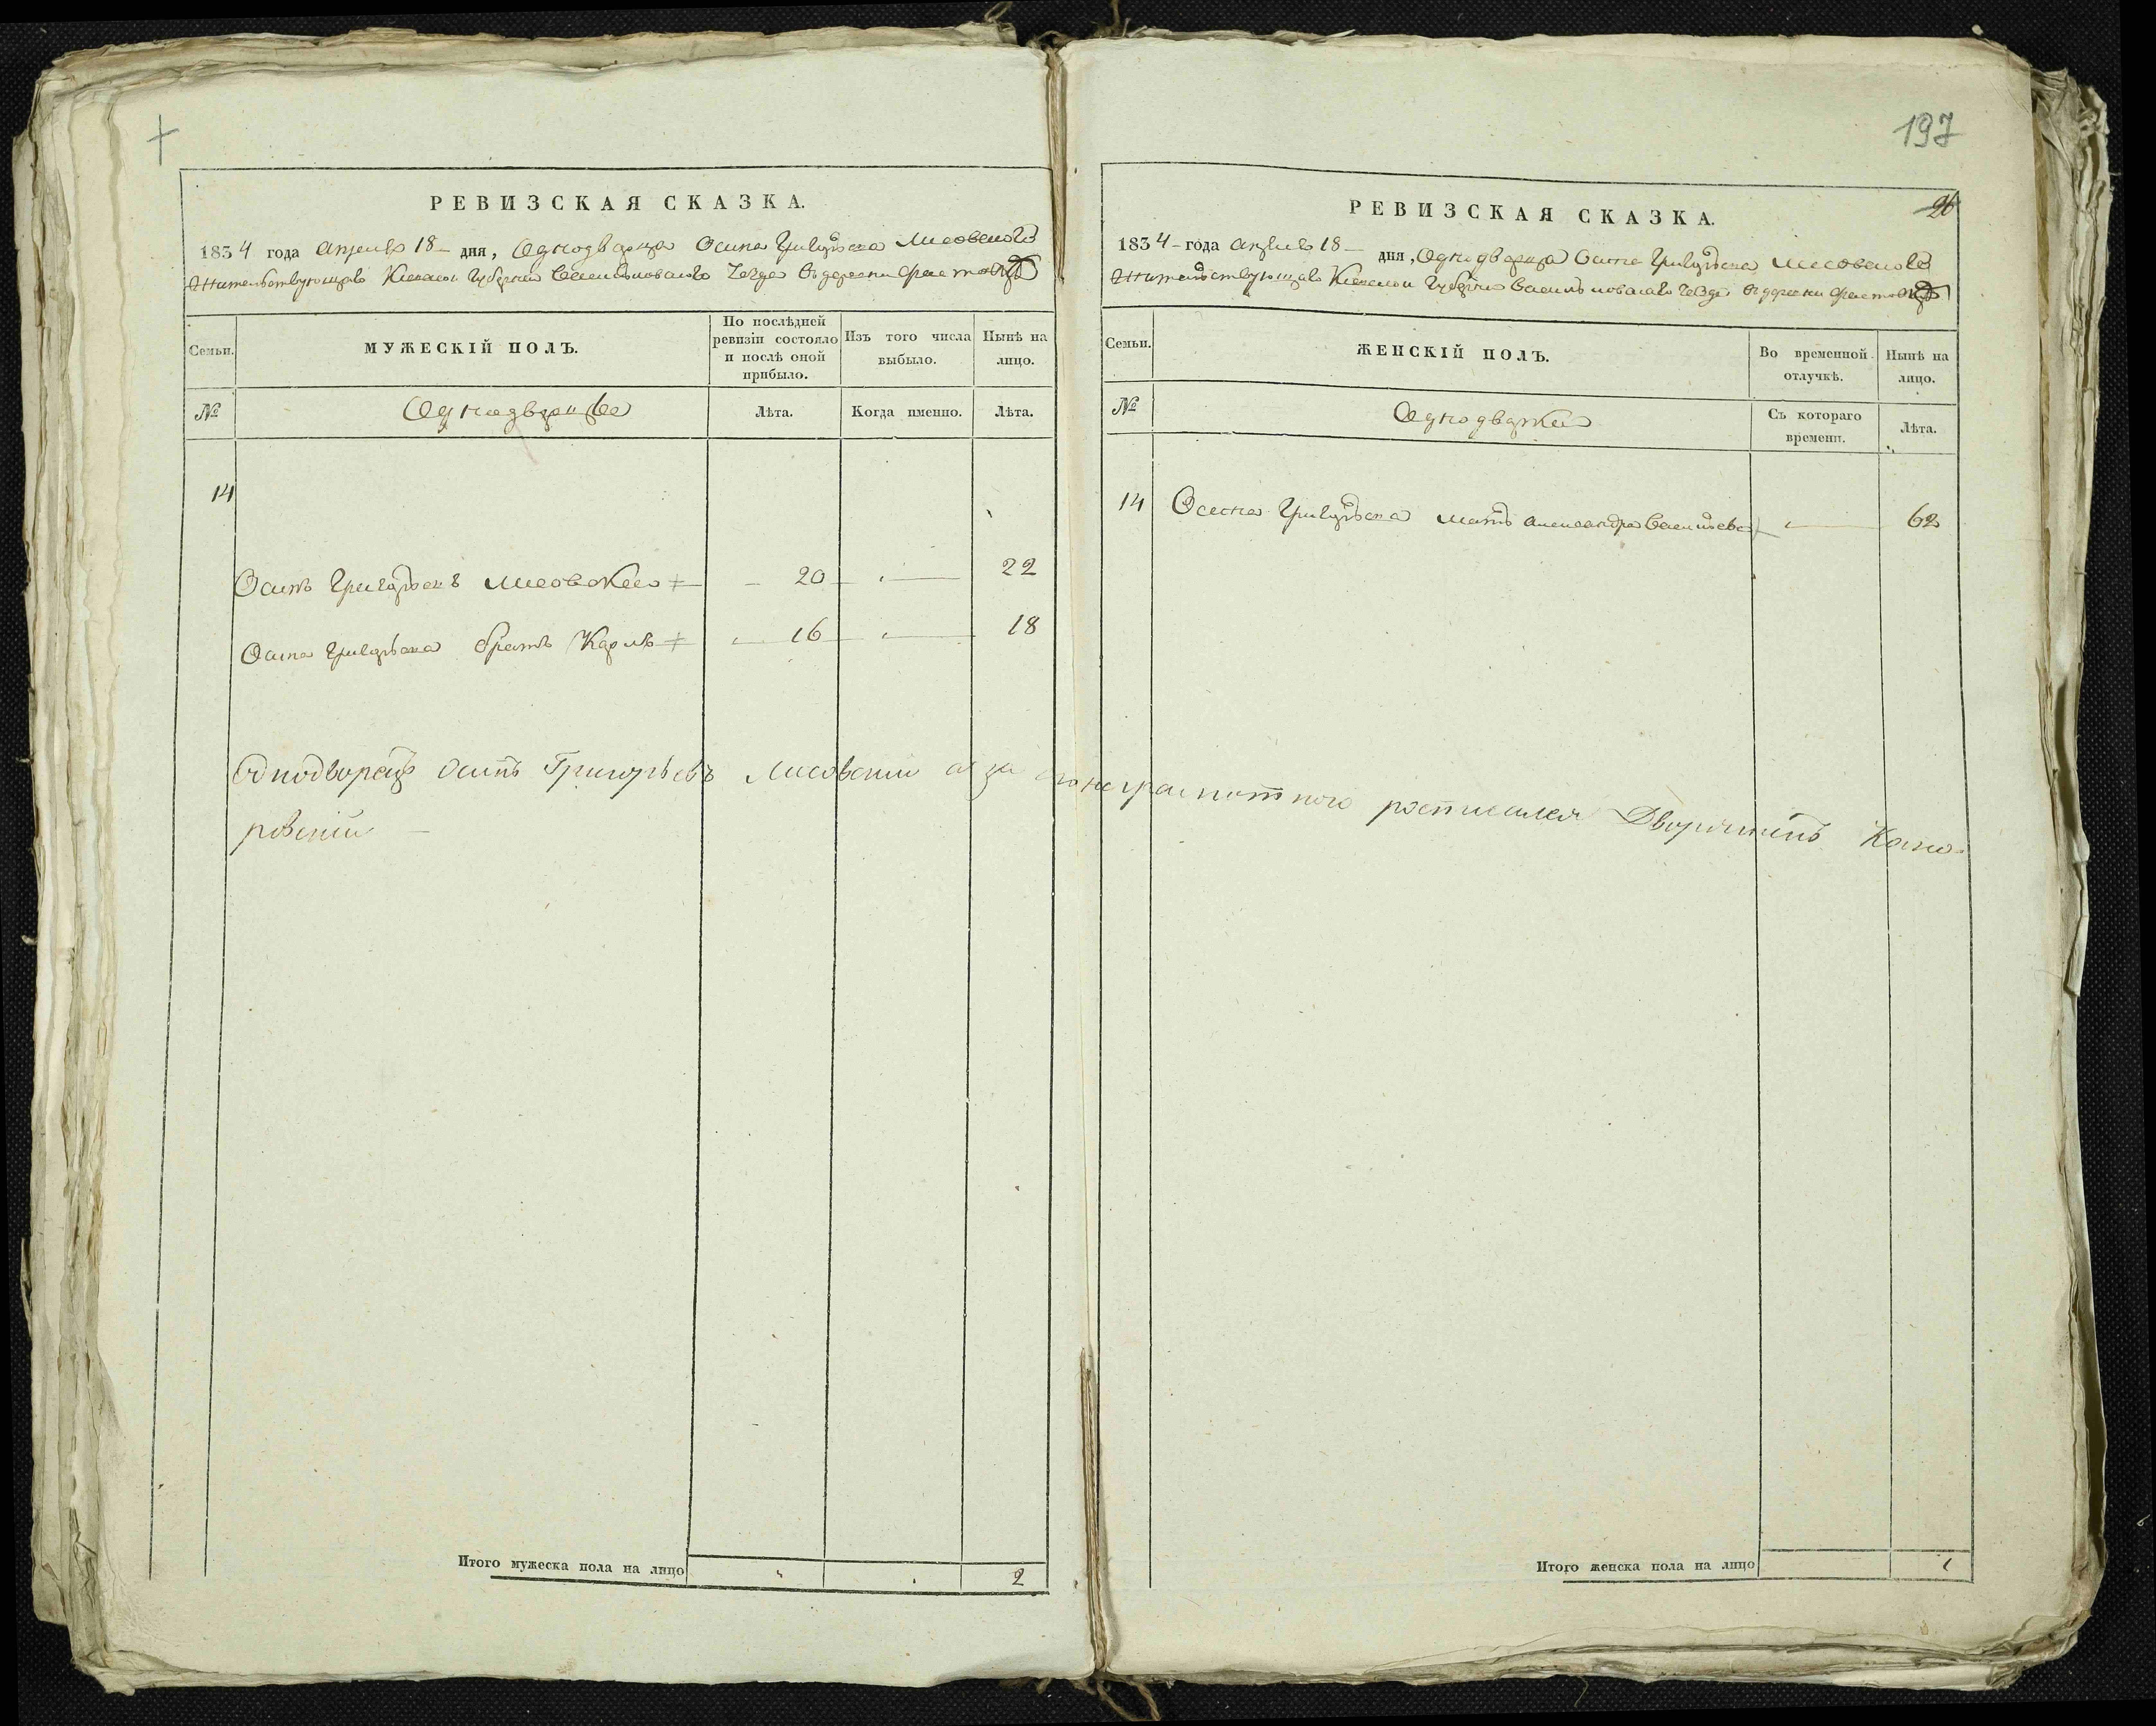 197
РЕВИЗСКАЯ СКАЗКА.
1834 года Апреля 18 дня, Однодворца Осипа Григорьева Лисовского
Жительствующаго Киевской Губернии Васильковского уезда в деревни
Семьи.
МУЖЕСКІЙ ПОЛЪ.
По послѣдней ревизіи состояло и послѣ оной прибыло.
Изъ того числа выбыло.
Нынѣ на лицо.
№
Однодворцы
Лѣта.
Когда именно.
Лѣта.
14
Осипъ Григорьевъ Лисовский 20 22
Осипа Григорьева братъ Карлъ 16 18
Однодворецъ Осипъ Григорьевъ Лисовский а за его неграмотного росписался Дворянинъ Кома-
ровский
Итого мужеска пола на лицо 2
26
РЕВИЗСКАЯ СКАЗКА.
1834 года Апреля 18 дня, Однодворца Осипа Григорьева Лисовского
Жительствующаго Киевской Губернии Васильковского уезда в деревни
Семьи.
ЖЕНСКІЙ ПОЛЪ.
Во временной отлучкѣ.
Нынѣ на лицо.
№
Однодворки
Съ котораго времени.
Лѣта.
14 Осипа Григорьева мать Александра Васильева 62
Итого женска пола на лицо 1